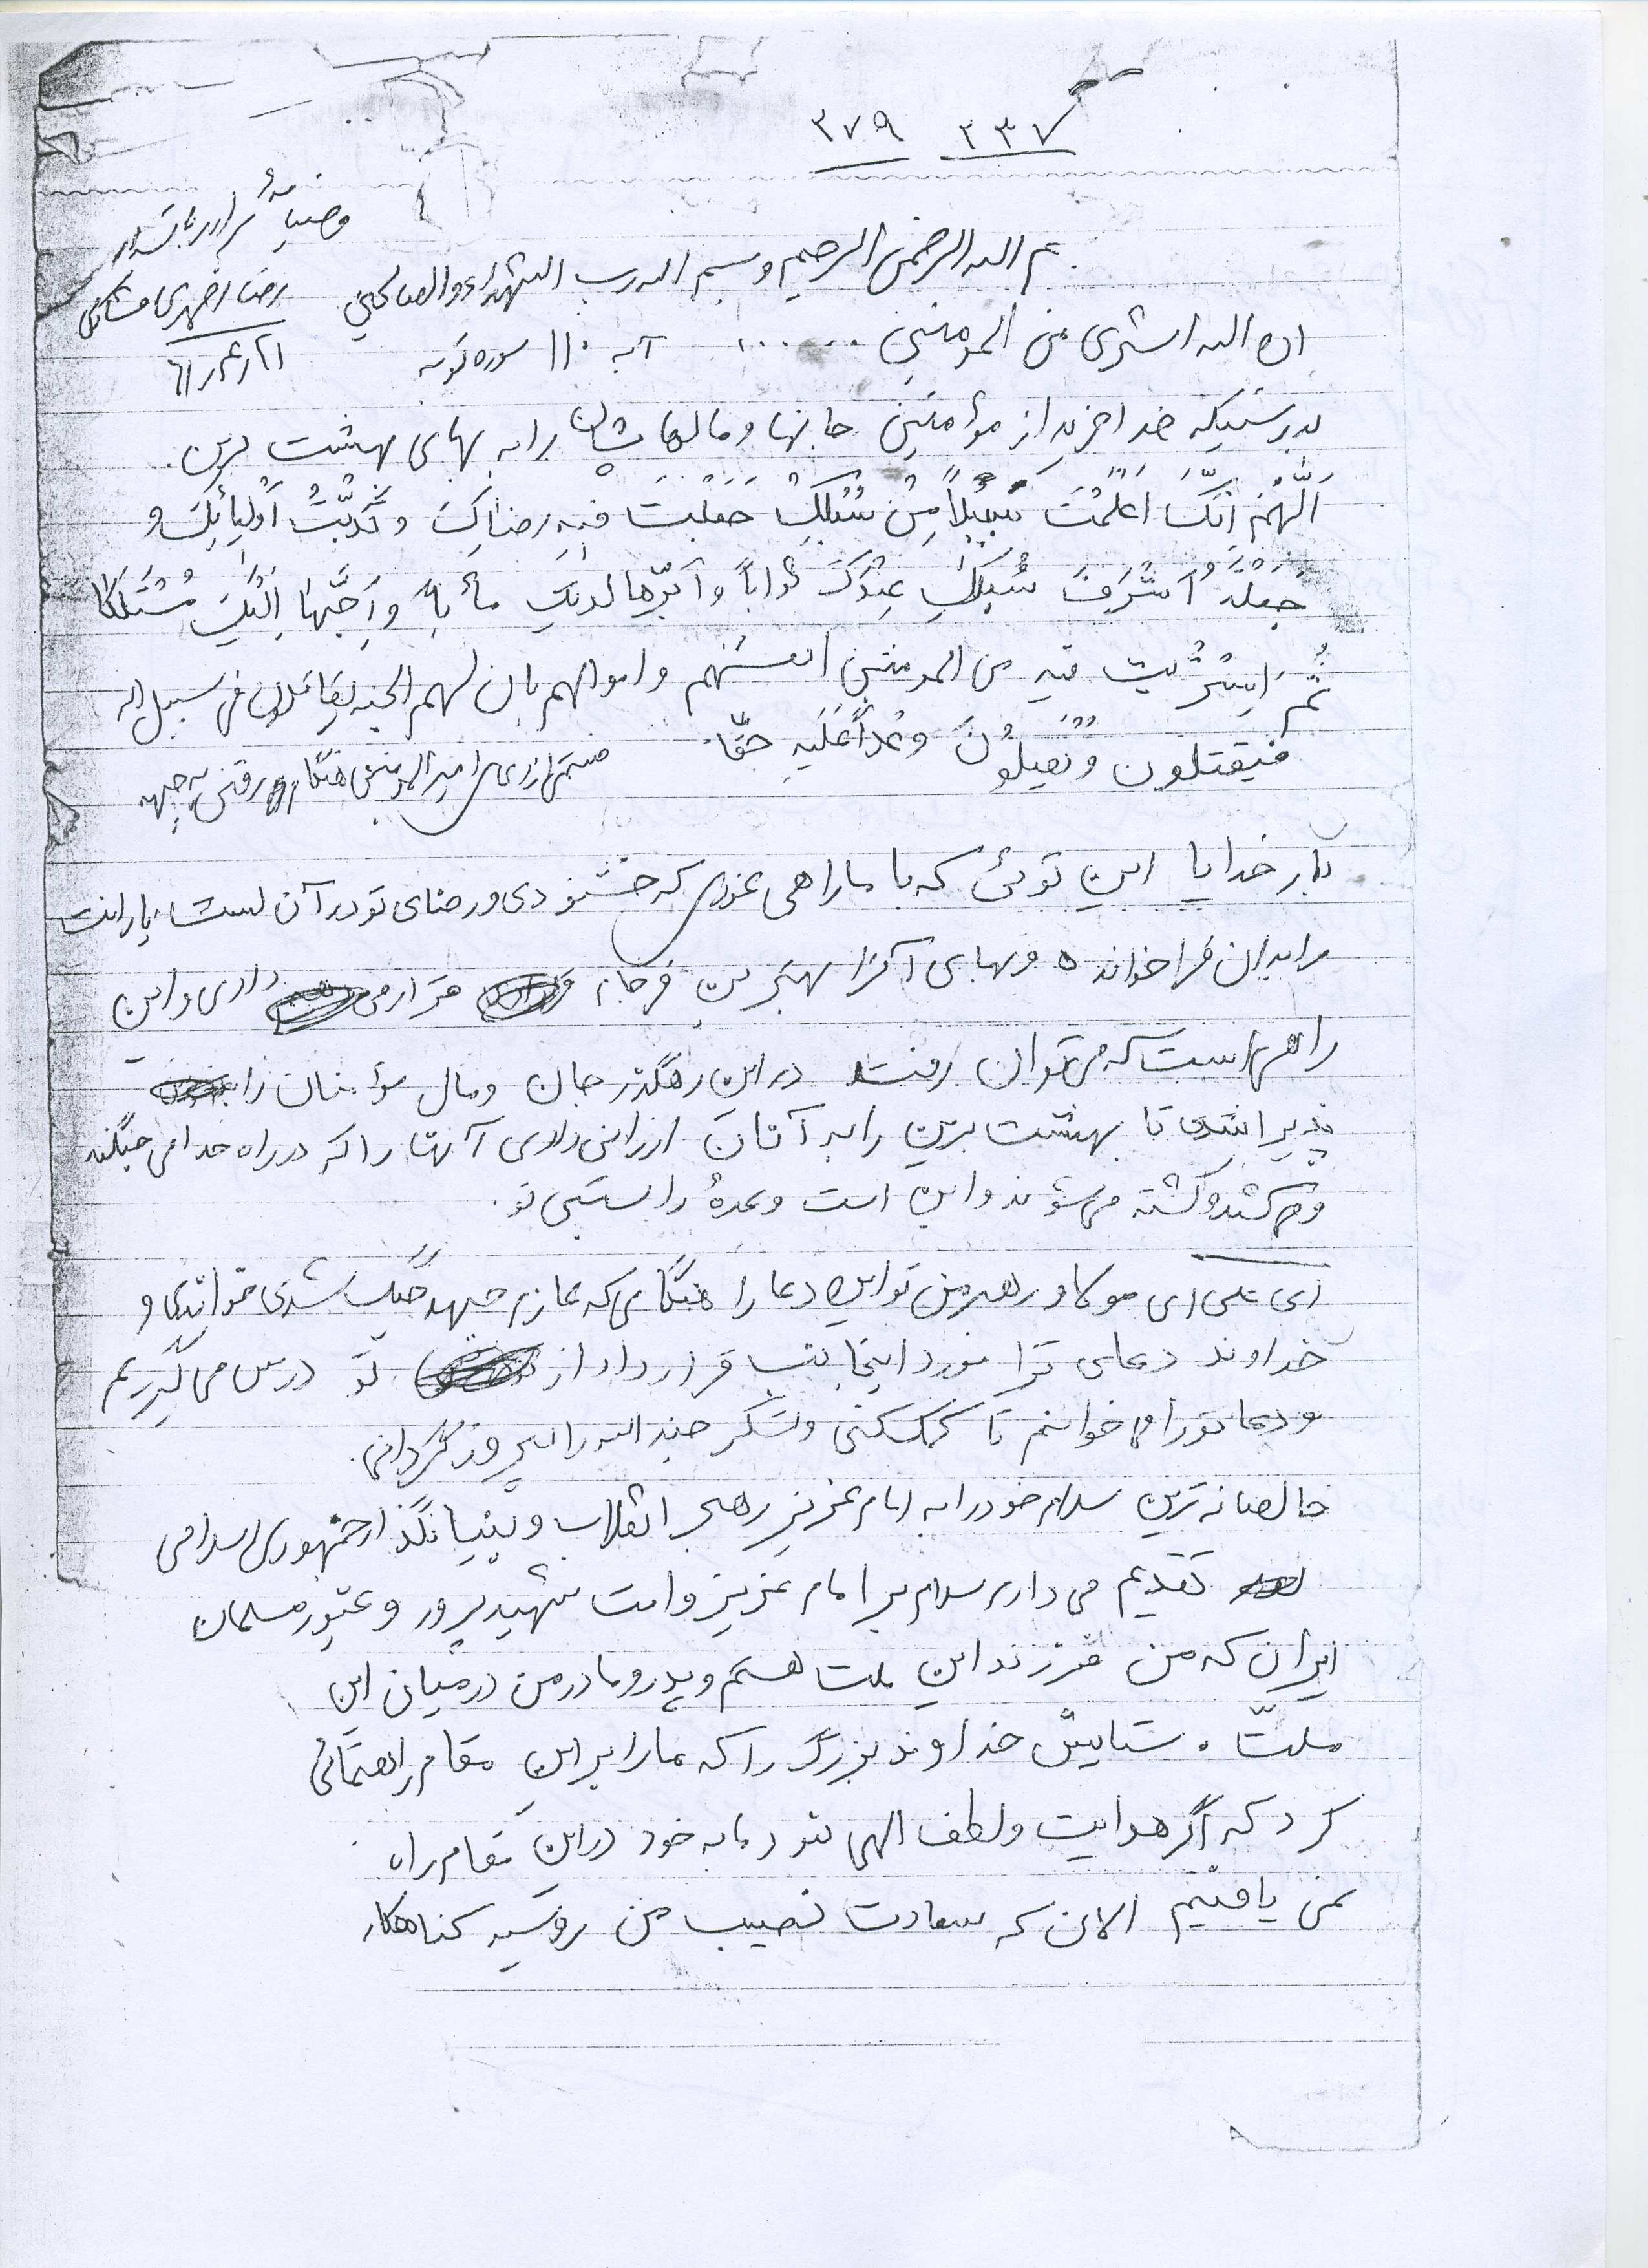 ۲۳۷ ۲۷۹
وصیتنامهٔ برادر پاسدار
رضا
بسم الله الرحمن الرحیم و بسم الله رب الشهداء والصالحین
ان الله اشتری من المومنین ...... آیه ۱۱۰ سوره توبه
بدرستیکه خدا خرید از مؤمنین جانها و مالهاشان را به بهای بهشت برین.
اَللّهُمَ اِنَّکَ اَعْلَمْتَ سَبیلاً مِنْ سُبُلِکَ جَعَلْتَ فیهِ رضاکَ وَ نَدَبْتَ اَوْلیائِکَ و
جَعَلْتَهُ اَشْرَفَ سُبُلِکَ عِنْدَکَ ثواباً و اَکْرَمِها لدیکَ مأباً وَ اَحَبَّها اِلَیْکَ مَسْلَکاً
ثُمَّ اِشْتَریت فیهِ من المومنین انفسهم و اموالهم بان لهم الجنه یقاتلون فی سبیل الله
فیقتلون وَ یُقتلُونَ وعْداً عَلَیهِ حَقّاً.
قسمتی از دعای امیرالمومنین هنگام رفتن به جبهه
بار خدایا این توئی که با ما راهی نمودی که خشنودی و رضای تو در آن است، یارانت
را بدان فراخوانده و بهای آنرا بهترین فرجام قرار می داری و این
راهی است که می‌توان رفت در این رهگذر جان و مال مؤمنان را
پذیرا شدی تا بهشت برین را به آنان ارزانی داری آنها را که در راه خدا می جنگند
و می کشند و کشته می شوند و این است وعدهٔ راستین تو.
ای علی ای مولا و رهبر من تو این دعا را هنگامی که عازم جبهه جنگ شدی خواندی و
خداوند دعای ترا مورد اجابت قرار داد از تو درس می گیریم
و دعا تو را می خوانیم تا کمک کنی و لشکر جند الله را پیروز گردانی.
خالصانه ترین سلام خود را به امام عزیز رهبر انقلاب و بنیانگذار جمهوری اسلامی
تقدیم می دارم سلام بر امام عزیز و امت شهیدپرور و غیور مسلمان
ایران که من فرزند این ملت هستم و پدر و مادر من در میان این
ملتّ. ستایش خداوند بزرگ را که ما را بر این مقام راهنمائی
کرد که اگر هدایت و لطف الهی نبود ما به خود در این مقام راه
نمی یافتیم الان که سعادت نصیب من روسیه گناهکار